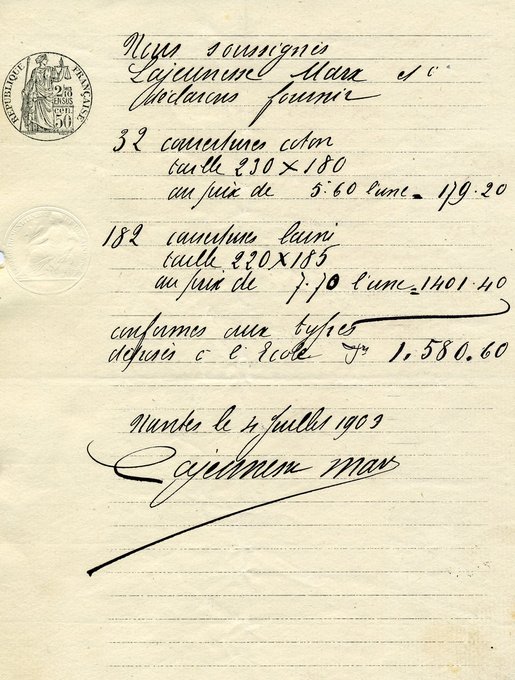 RÉPUBLIQUE FRANÇAISE
Nous soussignés
Lajeunesse Marx et Cie
déclarons fournir
32 couvertures coton
taille 230 X 180
au prix de 5.60 l'une = 179.20
182 couvertures laine
taille 220 X 185
au prix de 7.70 l'une = 1401.40
conformes aux types
déposés à l'Ecole 1.580.60
Nantes le 4 Juillet 1903
Lajeunesse Marx